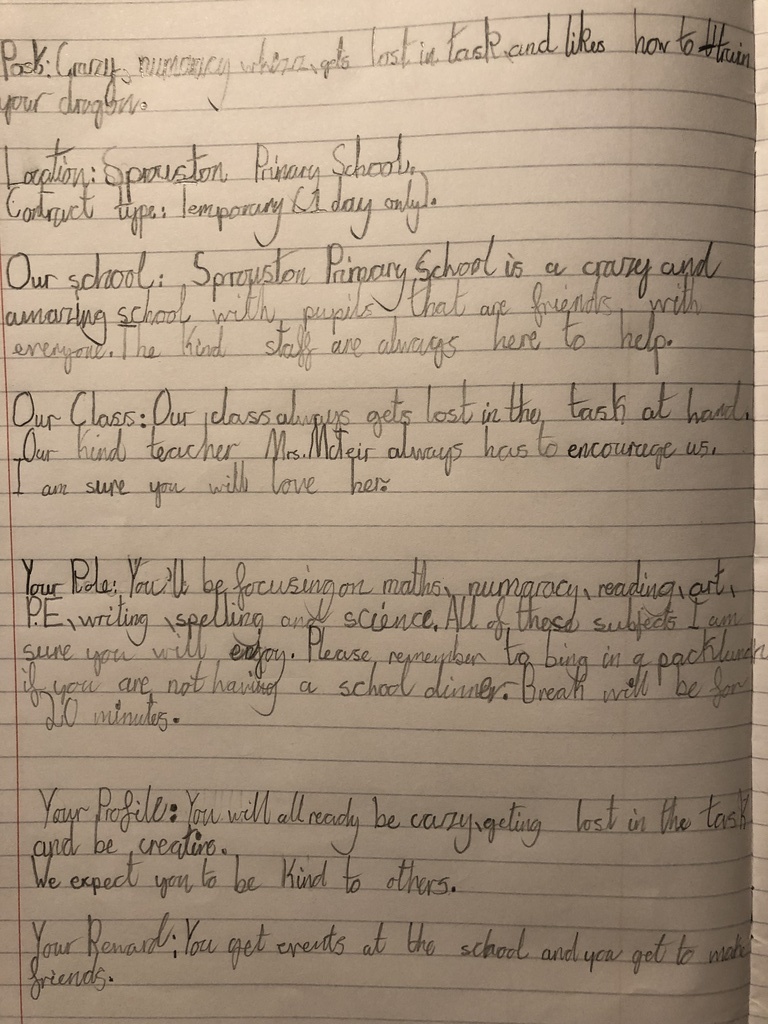 Post: Crazy, numoracy whizz, gets lost in task and likes how to train
your dragon.
Location: Sprouston Primary School.
Contract type: Temporary (1 day only).
Our school: Sprouston Primary School is a crazy and
amazing school with pupils that are friends with
everyone. The kind staff are always here to help.
Our Class: Our class always gets lost in the task at hand.
Our kind teacher Mrs. McTeir always has to encourage us.
I am sure you will love her.
Your Role: You'll be focusing on maths, numoracy, reading, art,
P.E, writing, spelling and science. All of those subjects I am
sure you will enjoy. Please remember to bing in a packlunch
if you are not having a school dinner. Break will be for
20 minutes.
Your Profile: You will allready be cazy, geting lost in the task
and be creative.
We expect you to be kind to others.
Your Reward: You get events at the school and you get to make
friends.